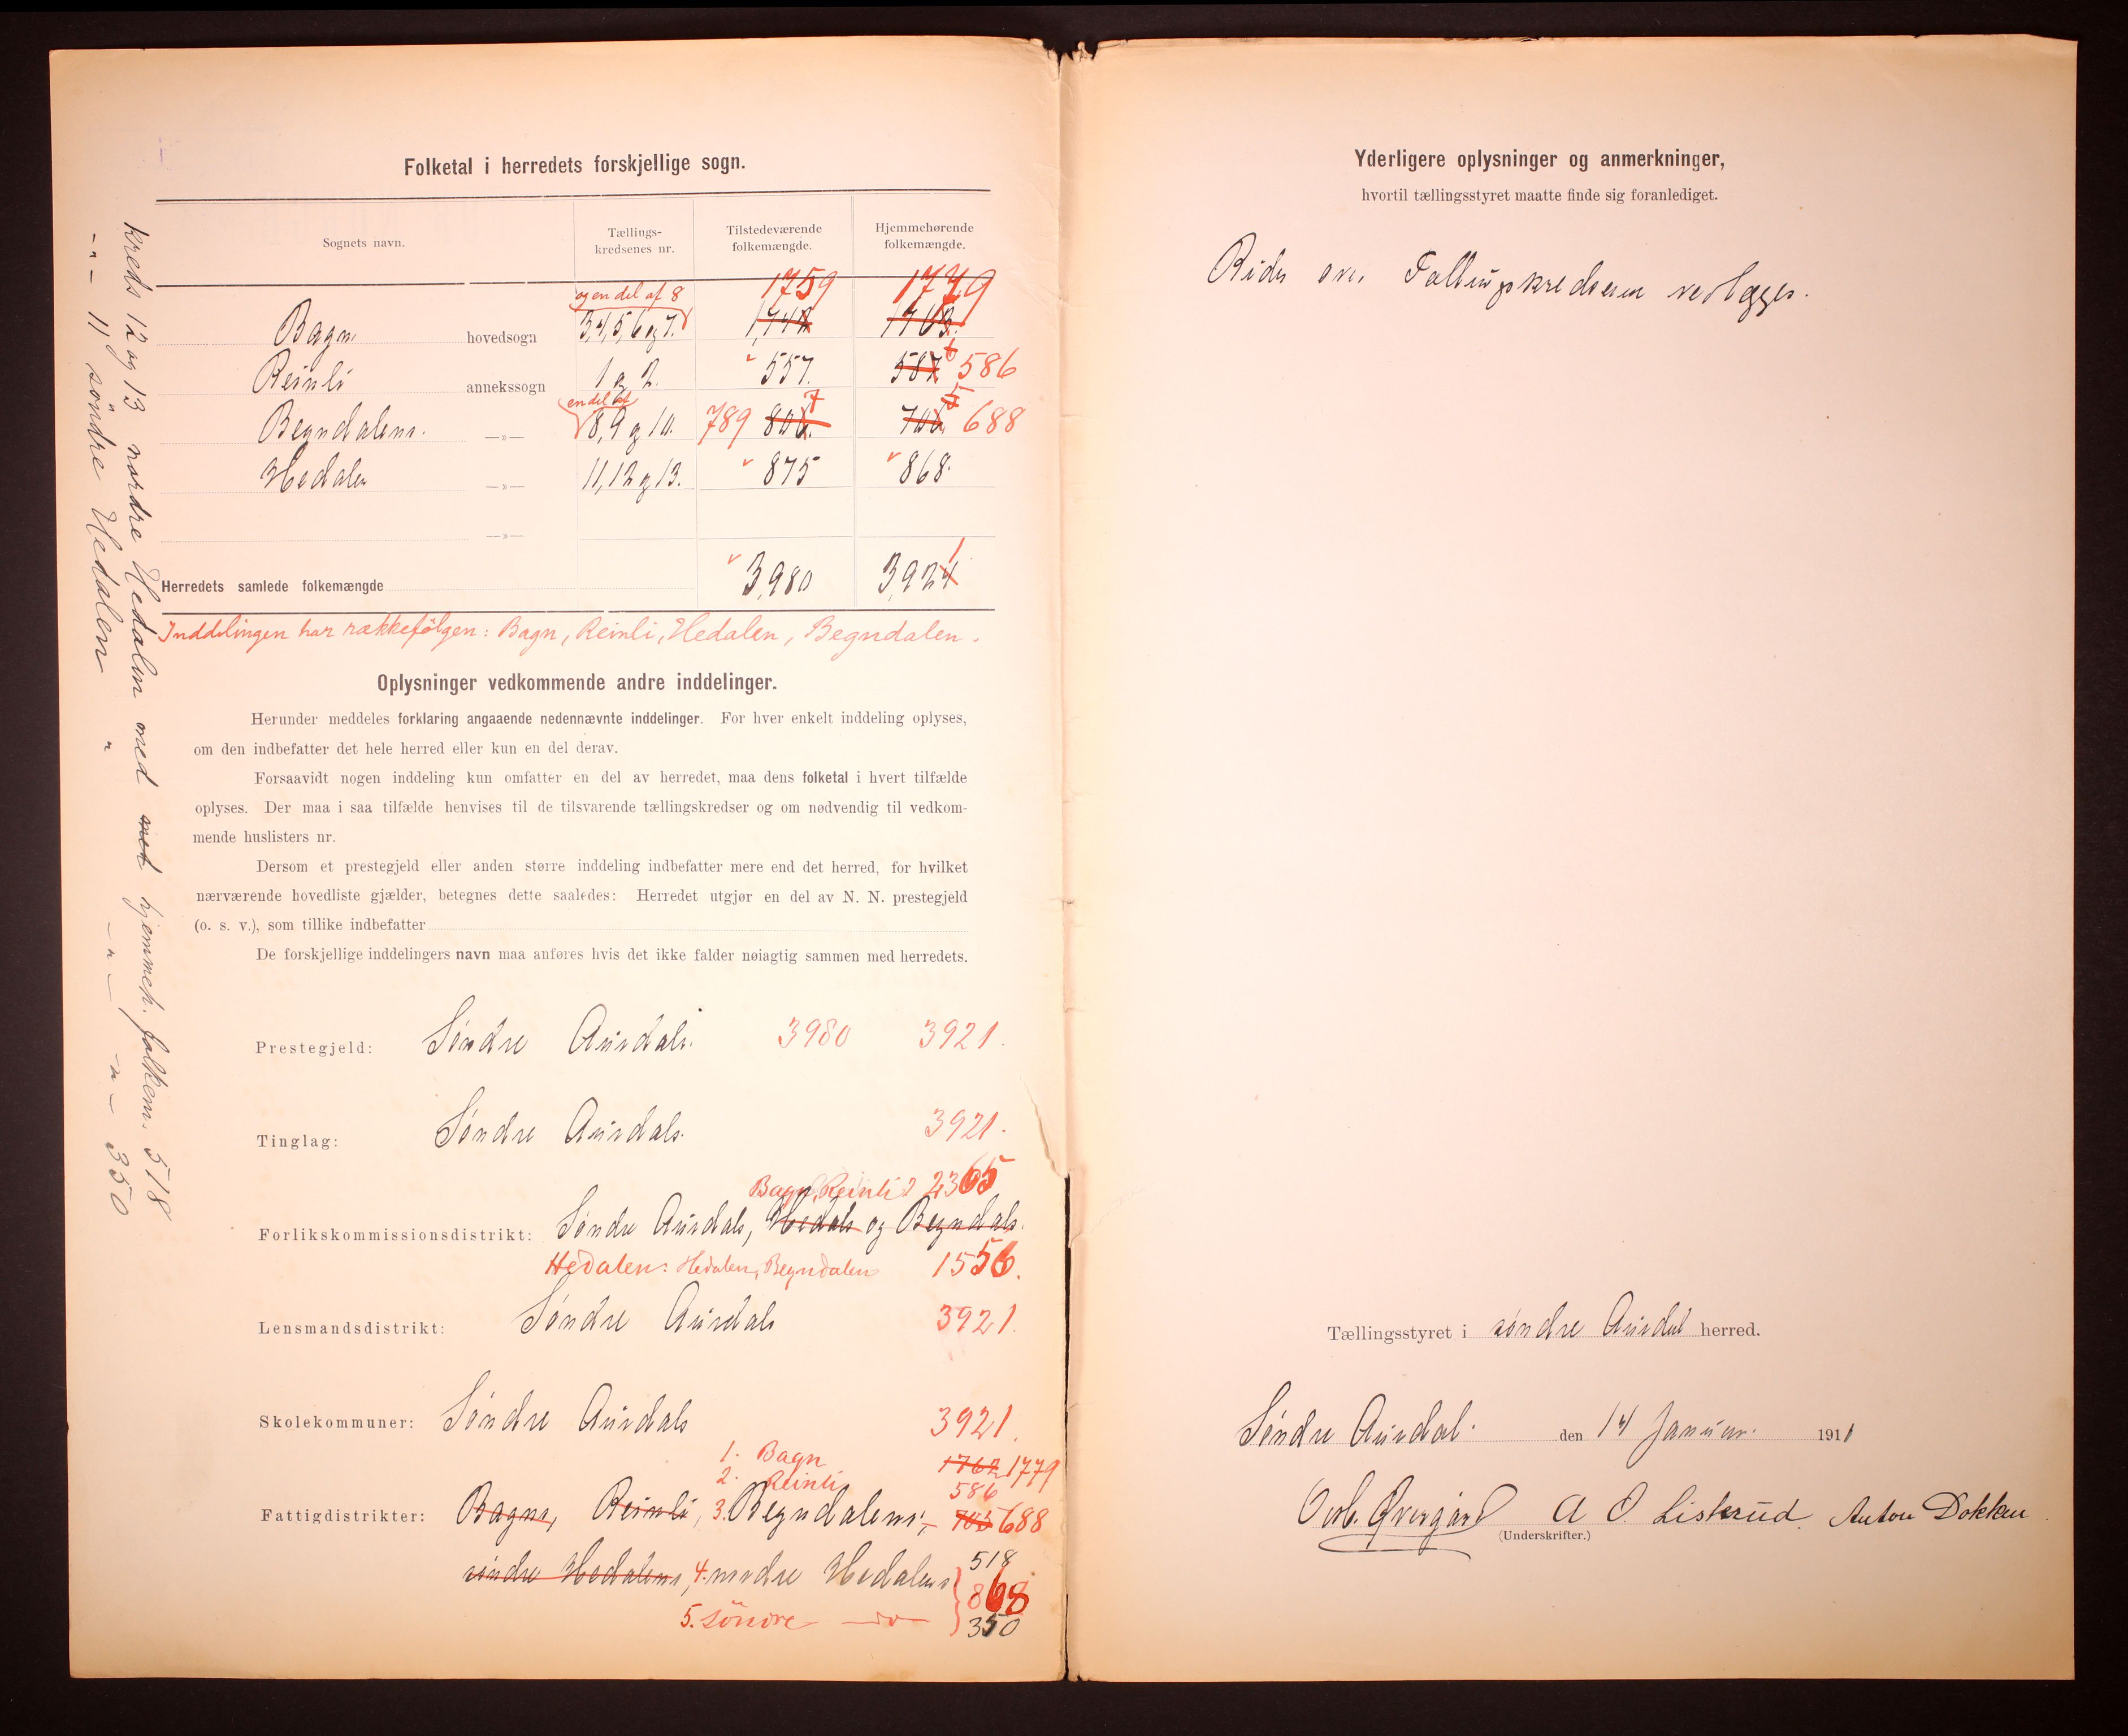 Folketal i herredets forskjellige sogn.
Sognets navn.
Tællings-
kredsenes nr.
Tilstedeværende
folkemængde.
Hjemmehørende
folkemængde.
og en del af 8 1759 1779
Bagns hovedsogn 3,4,5,6 og 7. 1,742 1763.
Reinli annekssogn 1 og 2. 557. 587 586
en del af
Begndalens. —»— 8,9 og 10. 789 806. 706 688
Hedalen —»— 11,12 og 13. 875 868.
—»—
Herredets samlede folkemængde 3,980 3,924 1
Inddelingen har rækkefølgen: Bagn, Reinli, Hedalen, Begndalen.
Kreds 12 og 13 nordre Hedalen med met hjemmeh. folkem. 518
-"- 11 söndre Hedalen " -"- -"- 350
Oplysninger vedkommende andre inddelinger.
Herunder meddeles forklaring angaaende nedennævnte inddelinger. For hver enkelt inddeling oplyses,
om den indbefatter det hele herred eller kun en del derav.
Forsaavidt nogen inddeling kun omfatter en del av herredet, maa dens folketal i hvert tilfælde
oplyses. Der maa i saa tilfælde henvises til de tilsvarende tællingskredser og om nødvendig til vedkom-
mende huslisters nr.
Dersom et prestegjeld eller anden større inddeling indbefatter mere end det herred, for hvilket
nærværende hovedliste gjælder, betegnes dette saaledes: Herredet utgjør en del av N. N. prestegjeld
(o. s. v.), som tillike indbefatter
De forskjellige inddelingers navn maa anføres hvis det ikke falder nøiagtig sammen med herredets.
Prestegjeld: Søndre Aurdals. 3980 3921.
Tinglag: Søndre Aurdals. 3921.
Bagn, Reinli 2365
Forlikskommissionsdistrikt: Søndre Aurdals, Hedals og Begndals.
Hedalen: Hedalen, Begndalen 1556.
Lensmandsdistrikt: Søndre Aurdals 3921.
Skolekommuner: Søndre Aurdals 3921.
1. Bagn 1762 1779
2. Reinli 586
Fattigdistrikter: Bagns, Reinli, 3. Begndalens, - 705 688
søndre Hedalens, 4. nordre Hedalens 518
868
5. söndre —do— 350
Yderligere oplysninger og anmerkninger,
hvortil tællingsstyret maatte finde sig foranlediget.
Rids over vedlægges.
Tællingsstyret i søndre Aurdal herred.
Søndre Aurdal. den 14 Januar. 1911
Øvergård A O. Liskrud. Anton Dokken
(Underskrifter.)